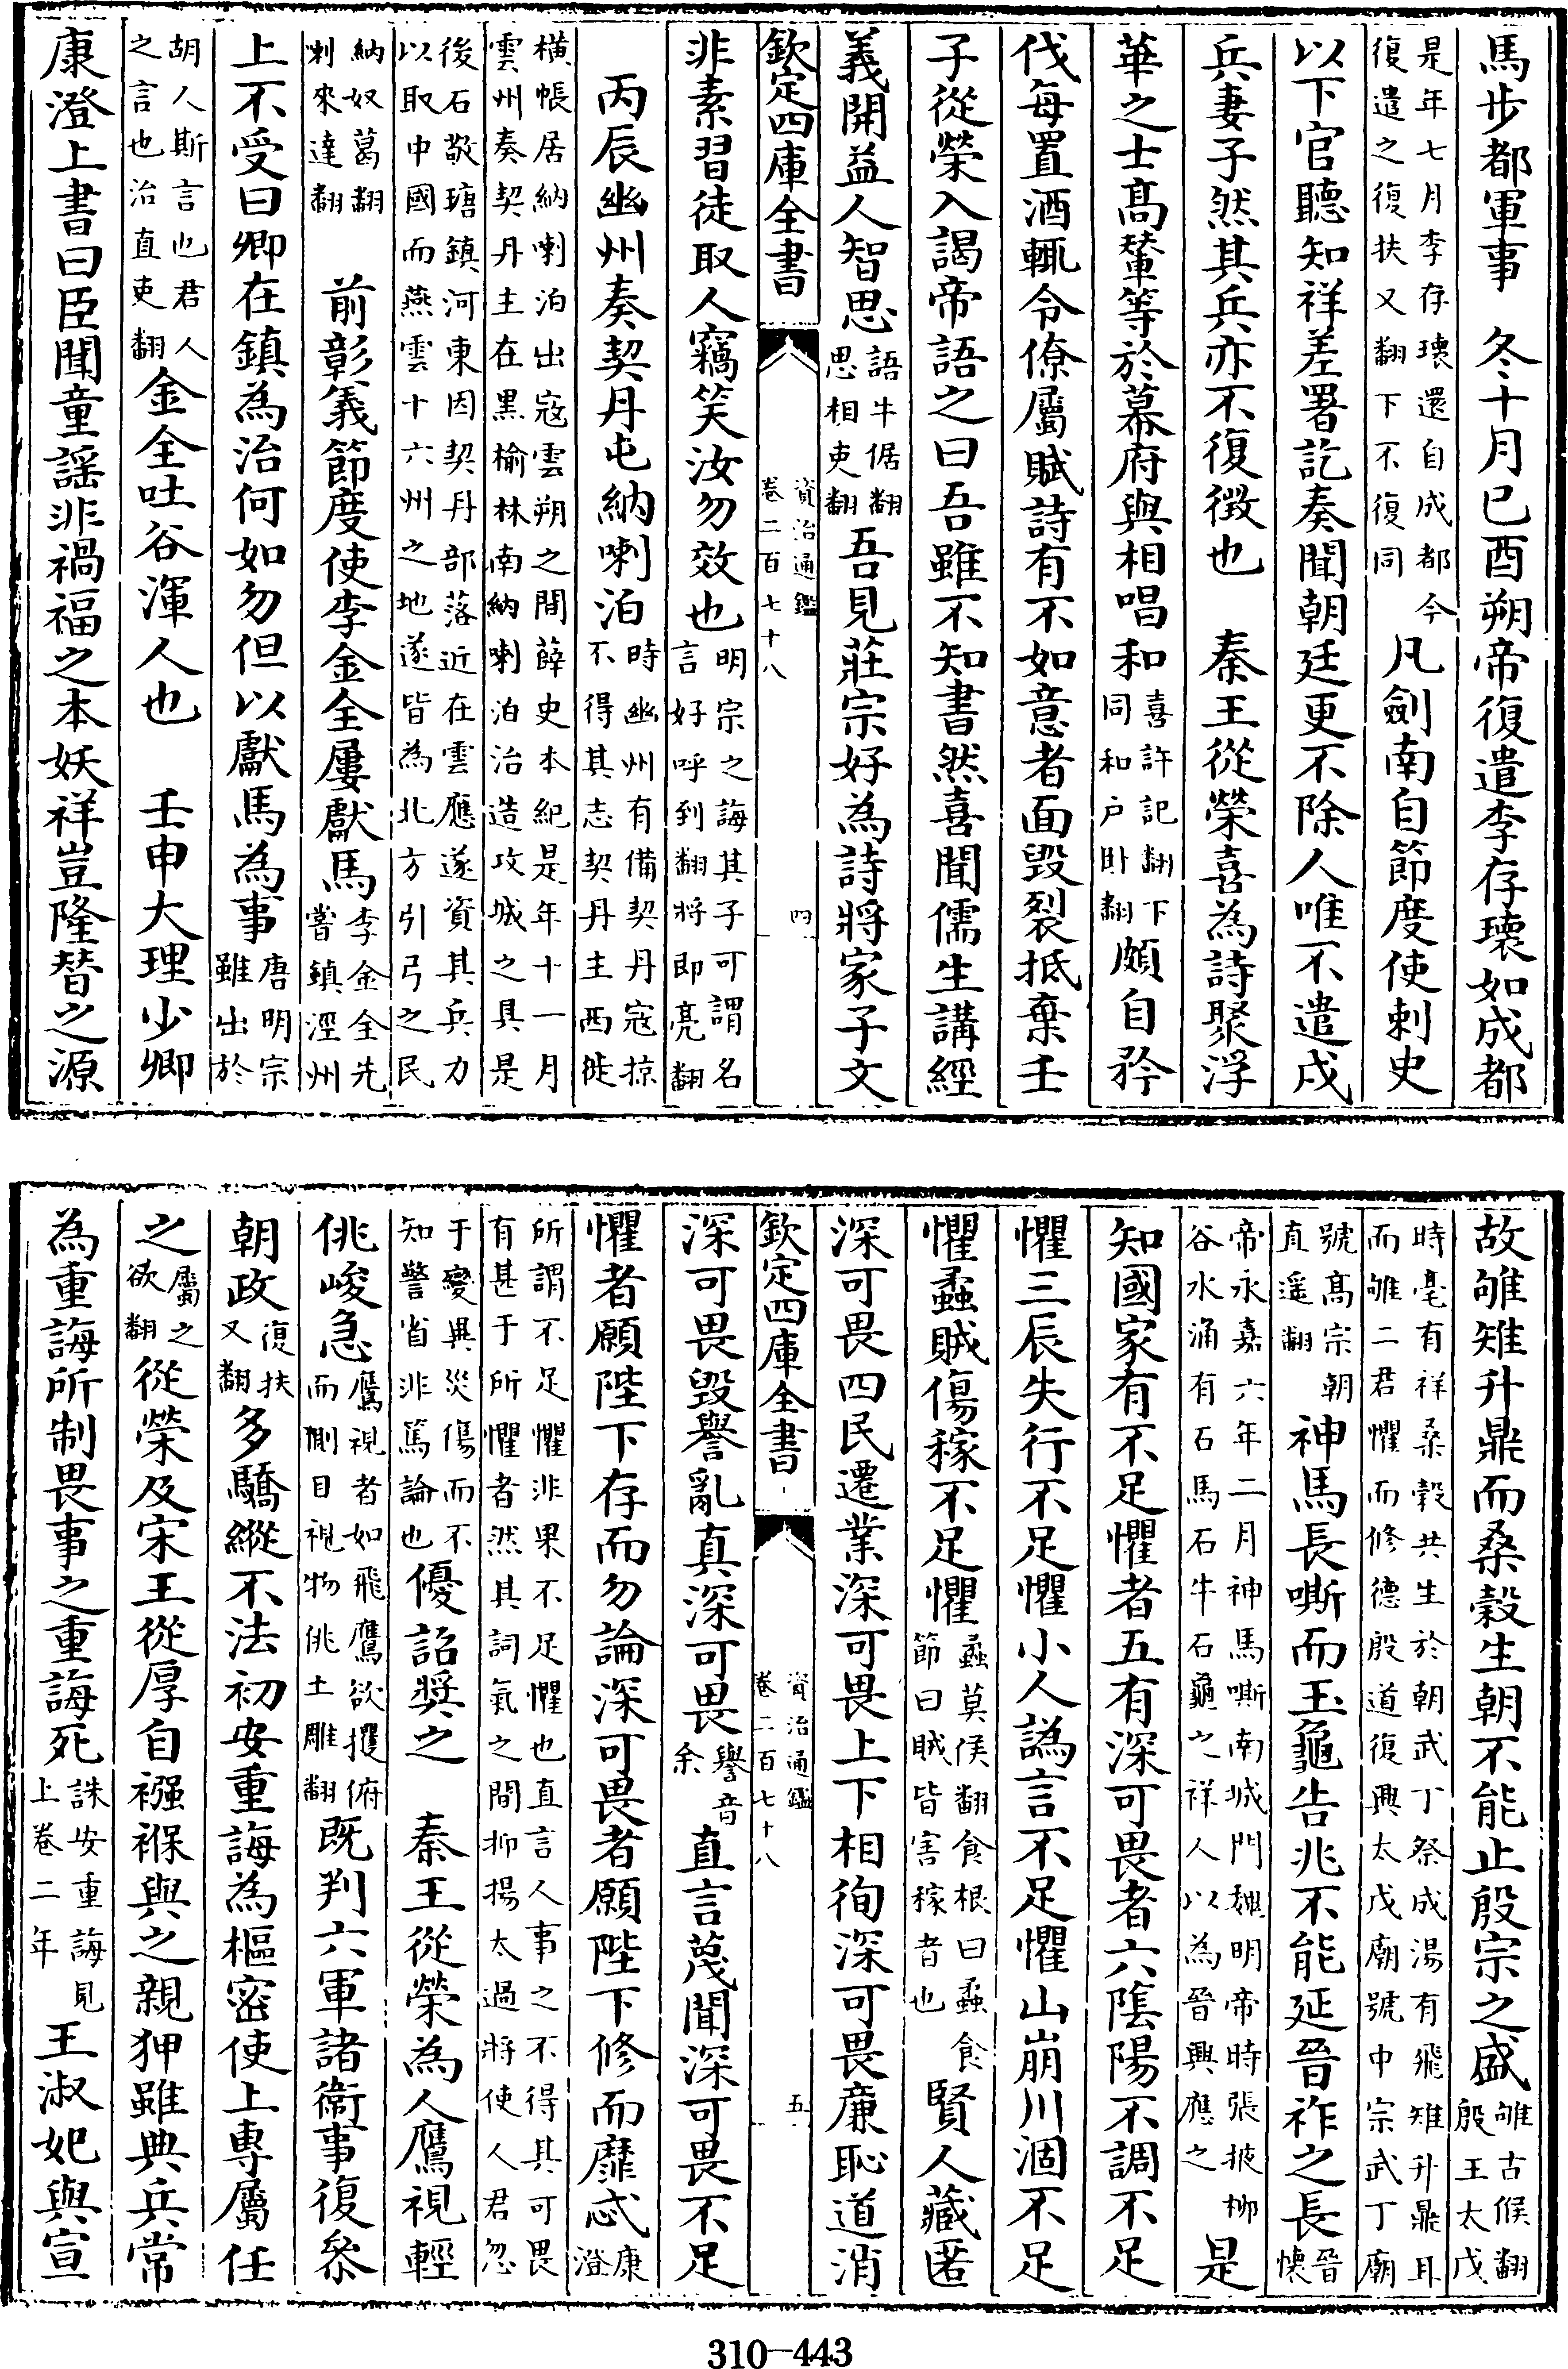 馬步都軍事　冬十月已酉朔帝復遣李存瓌如成都
是年七月李存瓌還自成都今
復遣之復扶又翻下不復同
凡劍南自節度使刺史
以下官聽知祥差署訖奏聞朝廷更不除人唯不遣戍
兵妻子然其兵亦不復徴也　秦王從榮喜為詩聚浮
華之士髙輦等於幕府與相唱和
喜許記翻下
同和户卧翻
頗自矜
伐每置酒輒令僚屬賦詩有不如意者面毀裂抵棄壬
子從榮入謁帝語之曰吾雖不知書然喜聞儒生講經
義開益人智思
語牛倨翻
思相吏翻
吾見莊宗好為詩將家子文
欽定四庫全書
資治通鑑
卷二百七十八
四
非素習徒取人竊笑汝勿效也
明宗之誨其子可謂名
言好呼到翻將即亮翻
丙辰幽州奏契丹屯納喇泊
時幽州有備契丹寇掠
不得其志契丹主西徙
橫帳居納喇泊出寇雲朔之間薛史本紀是年十一月
雲州奏契丹主在黑榆林南納喇泊治造攻城之具是
後石敬瑭鎮河東因契丹部落近在雲應遂資其兵力
以取中國而燕雲十六州之地遂皆為北方引弓之民
納奴葛翻
喇來達翻
前彰義節度使李金全屢獻馬
李金全先
嘗鎮涇州
上不受曰卿在鎮為治何如勿但以獻馬為事
唐明宗
雖出於
胡人斯言也君人
之言也治直吏翻
金全吐谷渾人也　壬申大理少卿
康澄上書曰臣聞童謡非禍福之本妖祥豈隆替之源
故雊雉升鼎而桑穀生朝不能止殷宗之盛
雊古候翻
殷王太戊
時亳有祥桑穀共生於朝武丁祭成湯有飛雉升鼎耳
而雊二君懼而修德殷道復興太戊廟號中宗武丁廟
號髙宗朝
直遥翻
神馬長嘶而玉龜告兆不能延晉祚之長
晉
懐
帝永嘉六年二月神馬嘶南城門魏明帝時張掖柳
谷水涌有石馬石牛石龜之祥人以為晉興應之
是
知國家有不足懼者五有深可畏者六隂陽不調不足
懼三辰失行不足懼小人譌言不足懼山崩川涸不足
懼蟊賊傷稼不足懼
蟊莫侯翻食根曰蟊食
節曰賊皆害稼者也
賢人藏匿
深可畏四民遷業深可畏上下相徇深可畏亷恥道消
欽定四庫全書
資治通鑑
卷二百七十八
五
深可畏毀譽亂真深可畏
譽音
余
直言蔑聞深可畏不足
懼者願陛下存而勿論深可畏者願陛下修而靡忒
康
澄
所謂不足懼非果不足懼也直言人事之不得其可畏
有甚于所懼者然其詞氣之間抑揚太過將使人君忽
于變異災傷而不
知警省非篤論也
優詔奬之　秦王從榮為人鷹視輕
佻峻急
鷹視者如飛鷹欲攫俯
而側目視物佻土雕翻
既判六軍諸衞事復叅
朝政
復扶
又翻
多驕縱不法初安重誨為樞密使上專屬任
之
屬之
欲翻
從榮及宋王從厚自襁褓與之親狎雖典兵常
為重誨所制畏事之重誨死
誅安重誨見
上卷二年
王淑妃與宣
310-443